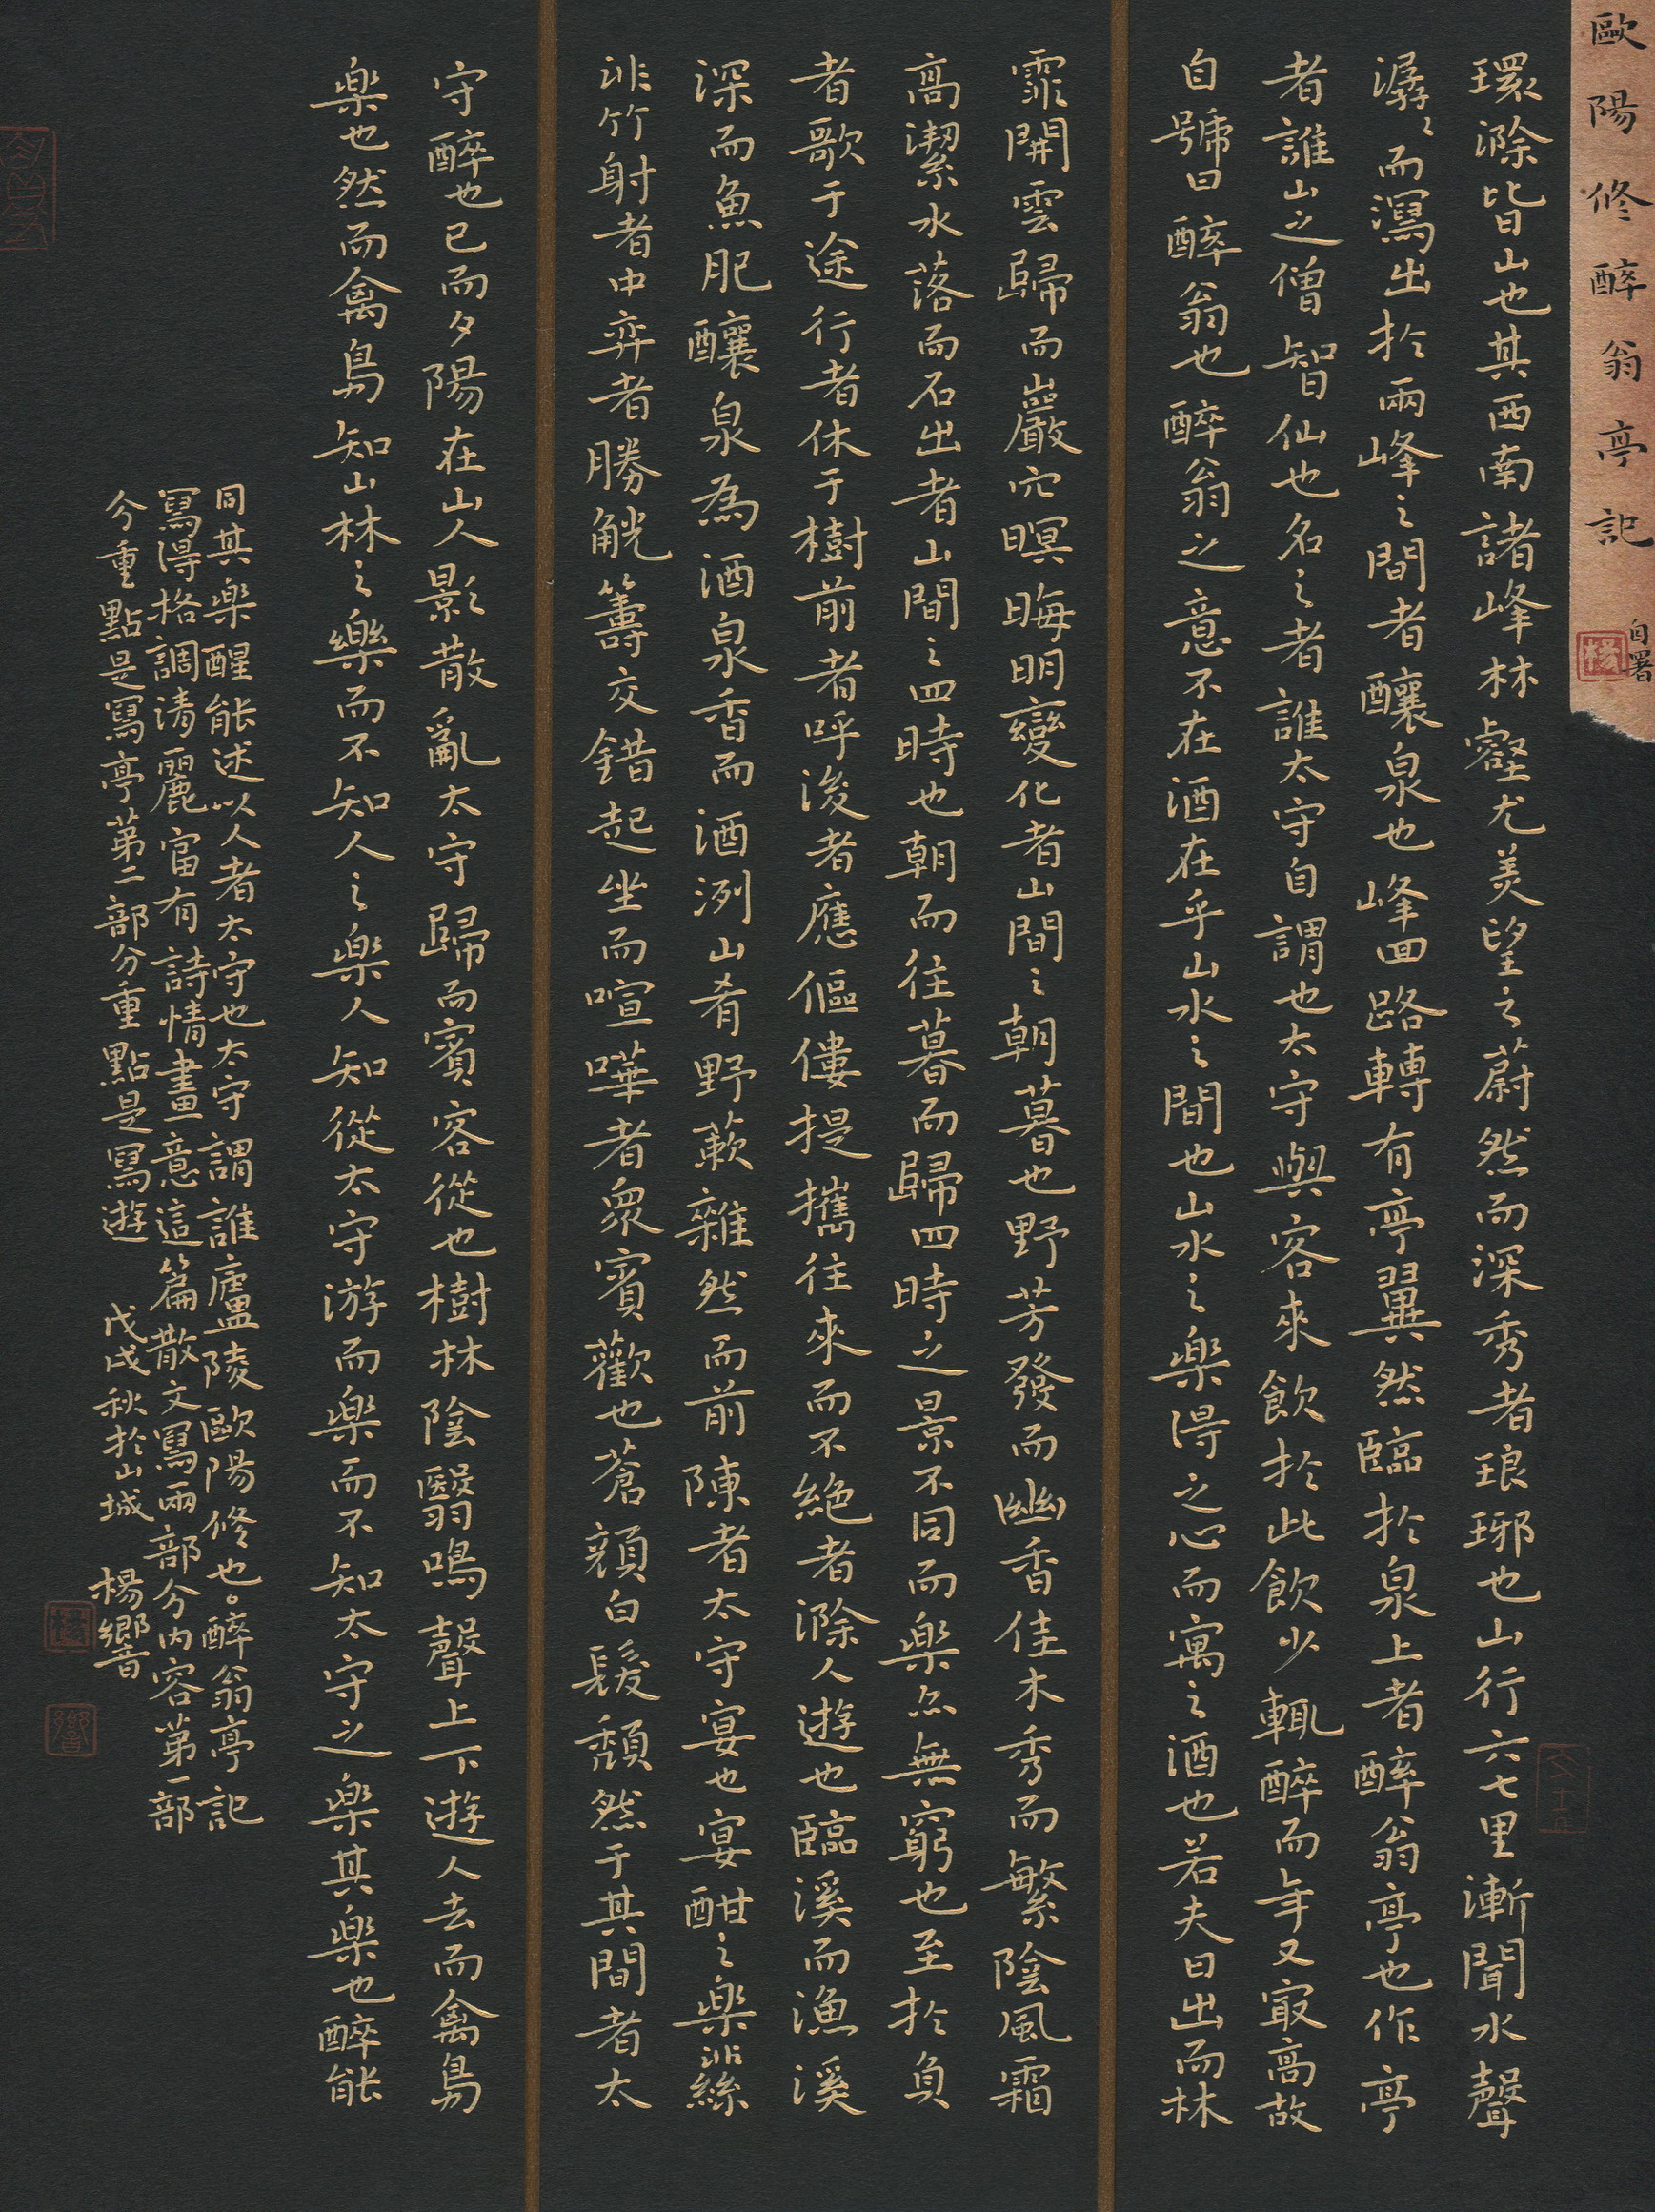 歐陽修醉翁亭記
自署
環滁皆山也其西南諸峰林壑尤美望之蔚然而深秀者琅琊也山行六七里漸聞水聲
潺〻而瀉出於兩峰之間者釀泉也峰回路轉有亭翼然臨於泉上者醉翁亭也作亭
者誰山之僧智仙也名之者誰太守自謂也太守與客來飲於此飲少輒醉而年又最高故
自號曰醉翁也醉翁之意不在酒在乎山水之間也山水之樂得之心而寓之酒也若夫日出而林
霏開雲歸而巖穴暝晦明變化者山間之朝暮也野芳發而幽香佳木秀而繁陰風霜
高潔水落而石出者山間之四時也朝而往暮而歸四時之景不同而樂亦無窮也至於負
者歌于途行者休于樹前者呼後者應傴僂提攜往來而不絕者滁人遊也臨溪而漁溪
深而魚肥釀泉為酒泉香而酒洌山肴野蔌雜然而前陳者太守宴也宴酣之樂非絲
非竹射者中弈者勝觥籌交錯起坐而喧嘩者眾賓歡也蒼顏白髮頹然于其間者太
守醉也已而夕陽在山人影散亂太守歸而賓客從也樹林陰翳鳴聲上下遊人去而禽鳥
樂也然而禽鳥知山林之樂而不知人之樂人知從太守游而樂而不知太守之樂其樂也醉能
同其樂醒能述以人者太守也太守謂誰廬陵歐陽修也。醉翁亭記
寫得格調清麗富有詩情畫意這篇散文寫兩部分內容第一部
分重點是寫亭第二部分重點是寫遊 戊戌秋於山城 楊響
楊